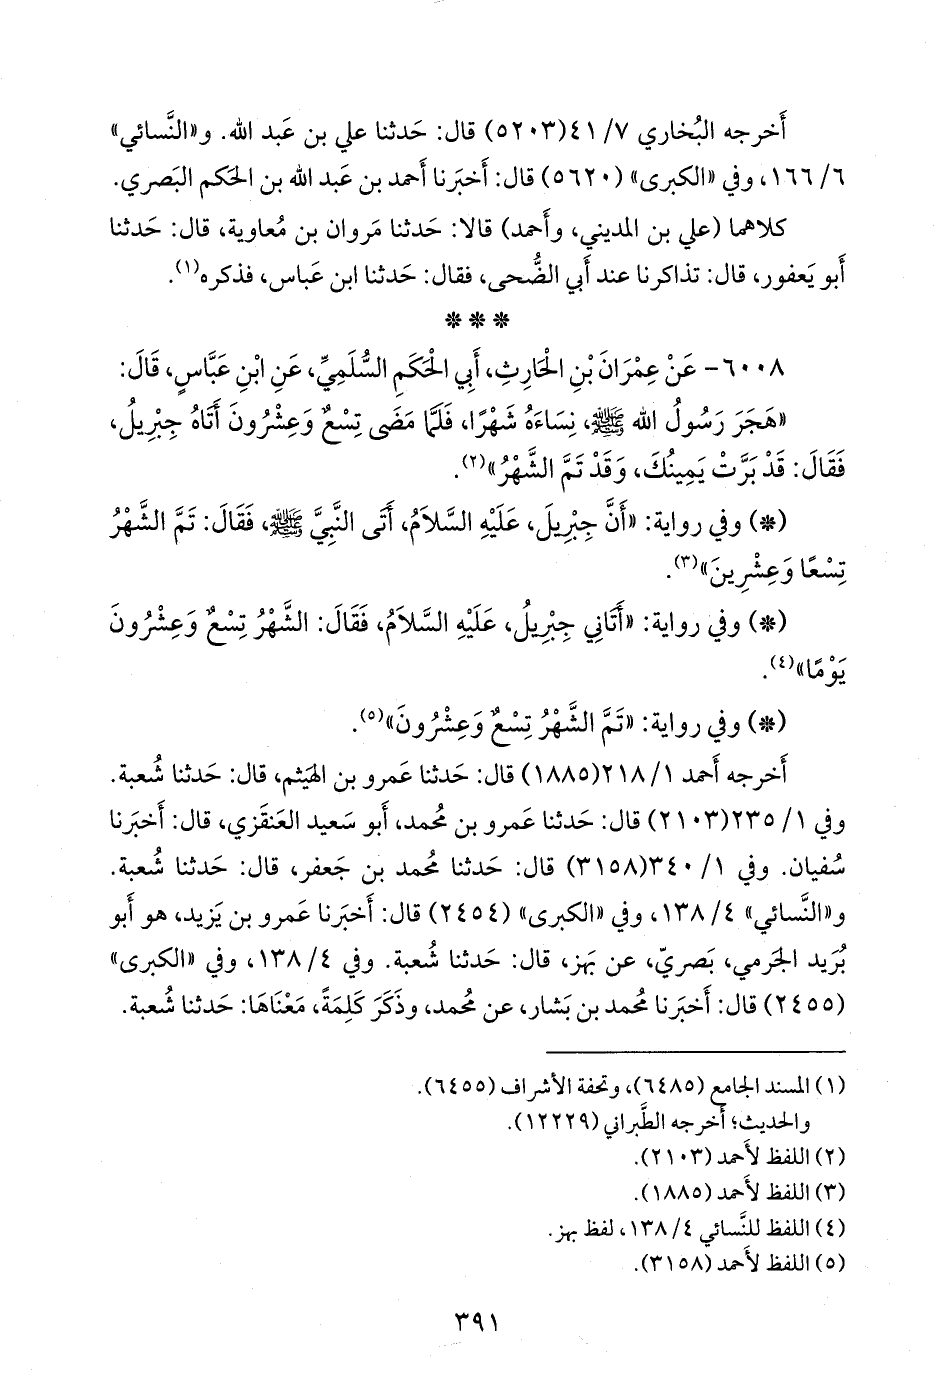 أَخرجه البُخاري ٧/ ٤١(٥٢٠٣) قال: حَدثنا علي بن عَبد الله. و«النَّسائي»
٦/ ١٦٦، وفي «الكبرى» (٥٦٢٠) قال: أَخبَرنا أَحمد بن عَبد الله بن الحَكم البَصري.
كلاهما (علي بن المديني، وأَحمد) قالا: حَدثنا مَروان بن مُعاوية، قال: حَدثنا
أَبو يَعفور، قال: تذاكرنا عند أَبي الضُّحى، فقال: حَدثنا ابن عَباس، فذكره(١).
* * *
٦٠٠٨- عَنْ عِمْرَانَ بْنِ الْحَارِثِ، أَبِي الْحَكَمِ السُّلَمِيِّ، عَنِ ابْنِ عَبَّاسٍ، قَالَ:
«هَجَرَ رَسُولُ الله ﷺ، نِسَاءَهُ شَهْرًا، فَلَمَّا مَضَى تِسْعٌ وَعِشْرُونَ أَتَاهُ جِبْرِيلُ،
فَقَالَ: قَدْ بَرَّتْ يَمِينُكَ، وَقَدْ تَمَّ الشَّهْرُ»(٢).
(*) وفي رواية: «أَنَّ جِبْرِيلَ، عَلَيْهِ السَّلَامُ، أَتَى النَّبِيَّ ﷺ، فَقَالَ: تَمَّ الشَّهْرُ
تِسْعًا وَعِشْرِينَ»(٣).
(*) وفي رواية: «أَتَانِي جِبْرِيلُ، عَلَيْهِ السَّلَامُ، فَقَالَ: الشَّهْرُ تِسْعٌ وَعِشْرُونَ
يَوْمًا»(٤).
(*) وفي رواية: «تَمَّ الشَّهْرُ تِسْعٌ وَعِشْرُونَ»(٥).
أَخرجه أَحمد ١/ ٢١٨(١٨٨٥) قال: حَدثنا عَمرو بن الهَيثم، قال: حَدثنا شُعبة.
وفي ١/ ٢٣٥(٢١٠٣) قال: حَدثنا عَمرو بن مُحمد، أَبو سَعيد العَنقَزي، قال: أَخبَرنا
سُفيان. وفي ١/ ٣٤٠(٣١٥٨) قال: حَدثنا مُحمد بن جَعفر، قال: حَدثنا شُعبة.
و«النَّسائي» ٤/ ١٣٨، وفي «الكبرى» (٢٤٥٤) قال: أَخبَرنا عَمرو بن يَزيد، هو أَبو
بُرَيد الجَرمي، بَصريّ، عن بَهز، قال: حَدثنا شُعبة. وفي ٤/ ١٣٨، وفي «الكبرى»
(٢٤٥٥) قال: أَخبَرنا مُحمد بن بَشار، عن مُحمد، وذَكَرَ كَلِمَةً، مَعْنَاهَا: حَدثنا شُعبة.
(١) المسند الجامع (٦٤٨٥)، وتحفة الأشراف (٦٤٥٥).
والحديث؛ أَخرجه الطَّبراني (١٢٢٢٩).
(٢) اللفظ لأَحمد (٢١٠٣).
(٣) اللفظ لأَحمد (١٨٨٥).
(٤) اللفظ للنَّسائي ٤/ ١٣٨، لفظ بهز.
(٥) اللفظ لأَحمد (٣١٥٨).
٣٩١